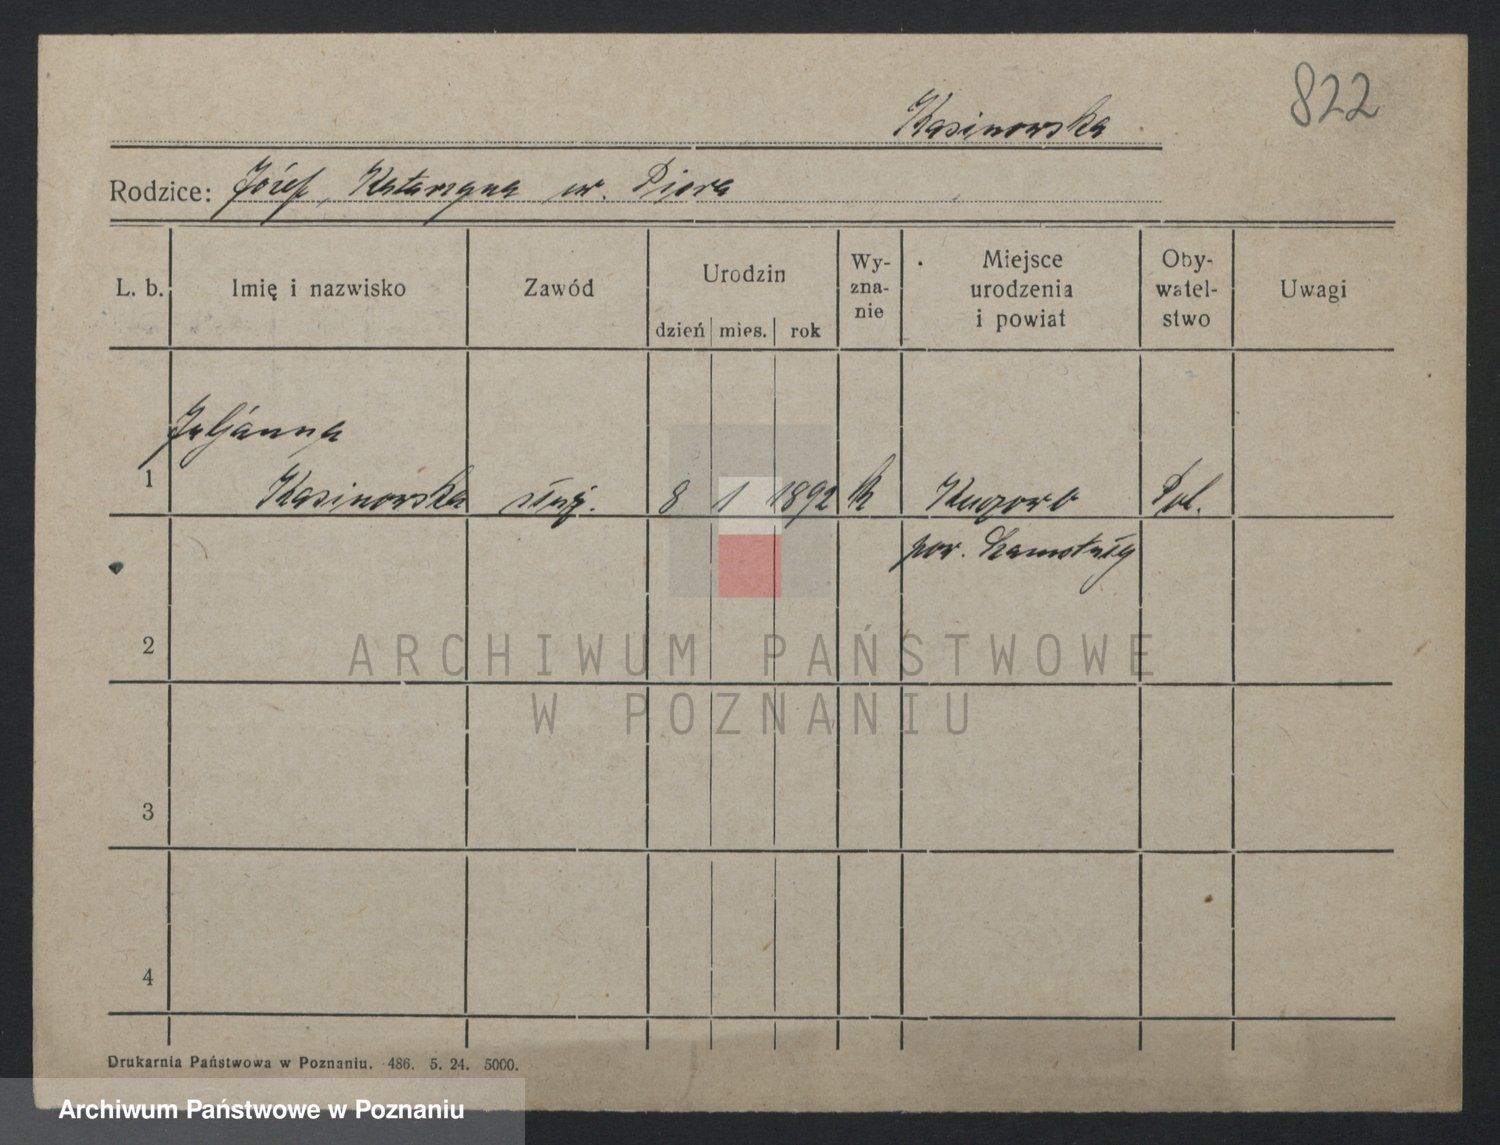 822
Kasinowska
Rodzice: Józef, Katarzyna ur. Piora
L. b.
Imię i nazwisko
Zawód
Urodzin
dzień mies. rok
Wy-
zna-
nie
Miejsce
urodzenia
i powiat
Oby-
watel-
stwo
Uwagi
Juljanna
1 Kasinowska służ. 8 1 1892 k Pol.
pow. Szamotuły
2
3
4
ARCHIWUM PAŃSTWOWE
W POZNANIU
Drukarnia Państwowa w Poznaniu. 486. 5. 24. 5000.
Archiwum Państwowe w Poznaniu